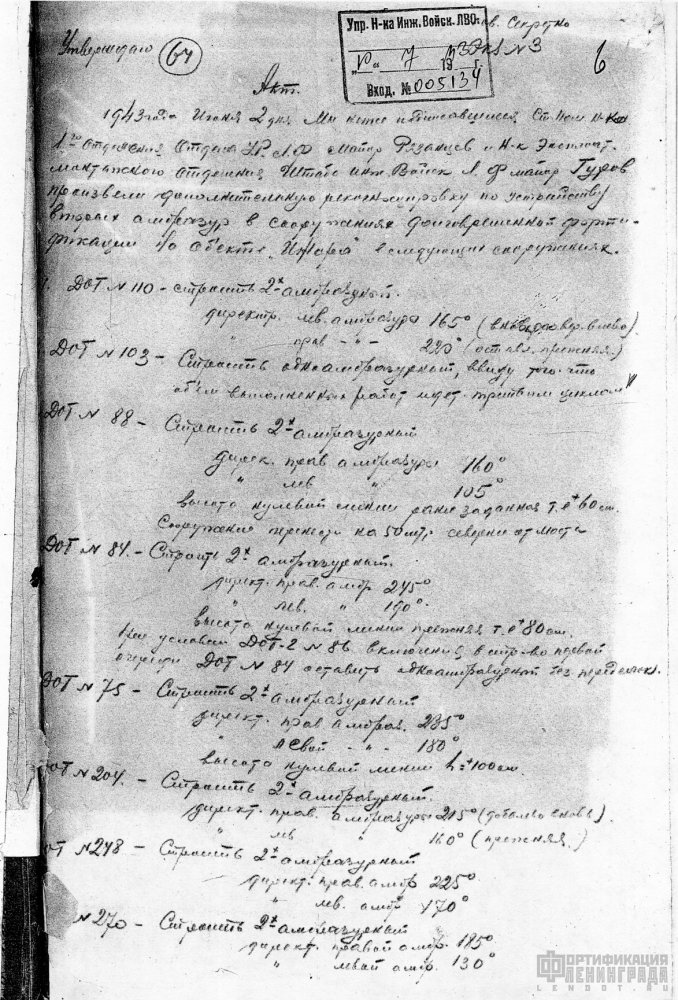 Упр. Н-ка Инж. Войск. ЛВО
Сов. Секретно
Экз. N 3
Вход. № 005134
6
Утверждаю
64
Акт.
1943 года Июня 2 дня. Мы ниже подписавшиеся Ст. Пом. Н-ка
1го отделения Отдела УР. Л.Ф майор Рязанцев и Н-к Эксплоат.
монтажного отделения Штаба инж. Войск Л. Ф майор Гуров
произвели дополнительную рекогносцировку по устройству
вторых амбразур в сооружениях долговременной форти-
фикации на объекте „Ижора" в следующих сооружениях.
1. ДОТ N 110 - строить 2х амбразурный.
директр. лев. амбразура 165° (влево)
" прав - " - 220° (остав. прежняя.)
ДОТ N 103 - Строить одноамбразурный, ввиду того что
объем выполненных работ идет третьим циклом
ДОТ N 88 - Строить 2х амбразурный
дирек. прав амбразуры 160°
" лев " 105°
высота нулевой линии ранее заданная т.е + 60 см.
Сооружение перенести на 50 мт. севернее от моста
ДОТ N 84. - Строить 2х амбразурный.
директ. прав. амбр 245°
" лев. " 190°.
высота нулевой линии прежняя т.е + 80 см.
При условии ДОТ-а N 86 включения в стр-во первой
очереди ДОТ N 84 оставить одноамбразурный без переделок.
ДОТ N 75 - Строить 2х амбразурный
директ. прав амбраз. 235°
" левой - " - 180°
высота нулевой линии h = +100 см.
ДОТ N 204. - Строить 2х амбразурный.
директ. прав. амбразуры 215° (вновь).
" лев " 160° (прежняя.)
ДОТ N 248 - Строить 2х амбразурный
директ. прав. амбр 225°
" лев. амбр 170°
N 270 - Строить 2х амбразурный
директ. правой амбр. 185°
" левой амбр. 130°
ФОРТИФИКАЦИЯ
ЛЕНИНГРАДА
LENDOT.RU